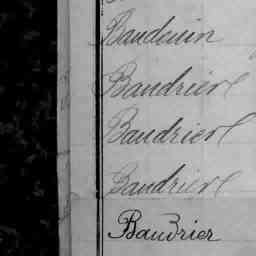 Bauduin
Baudrier
Baudrier
Baudrier
Baudrier